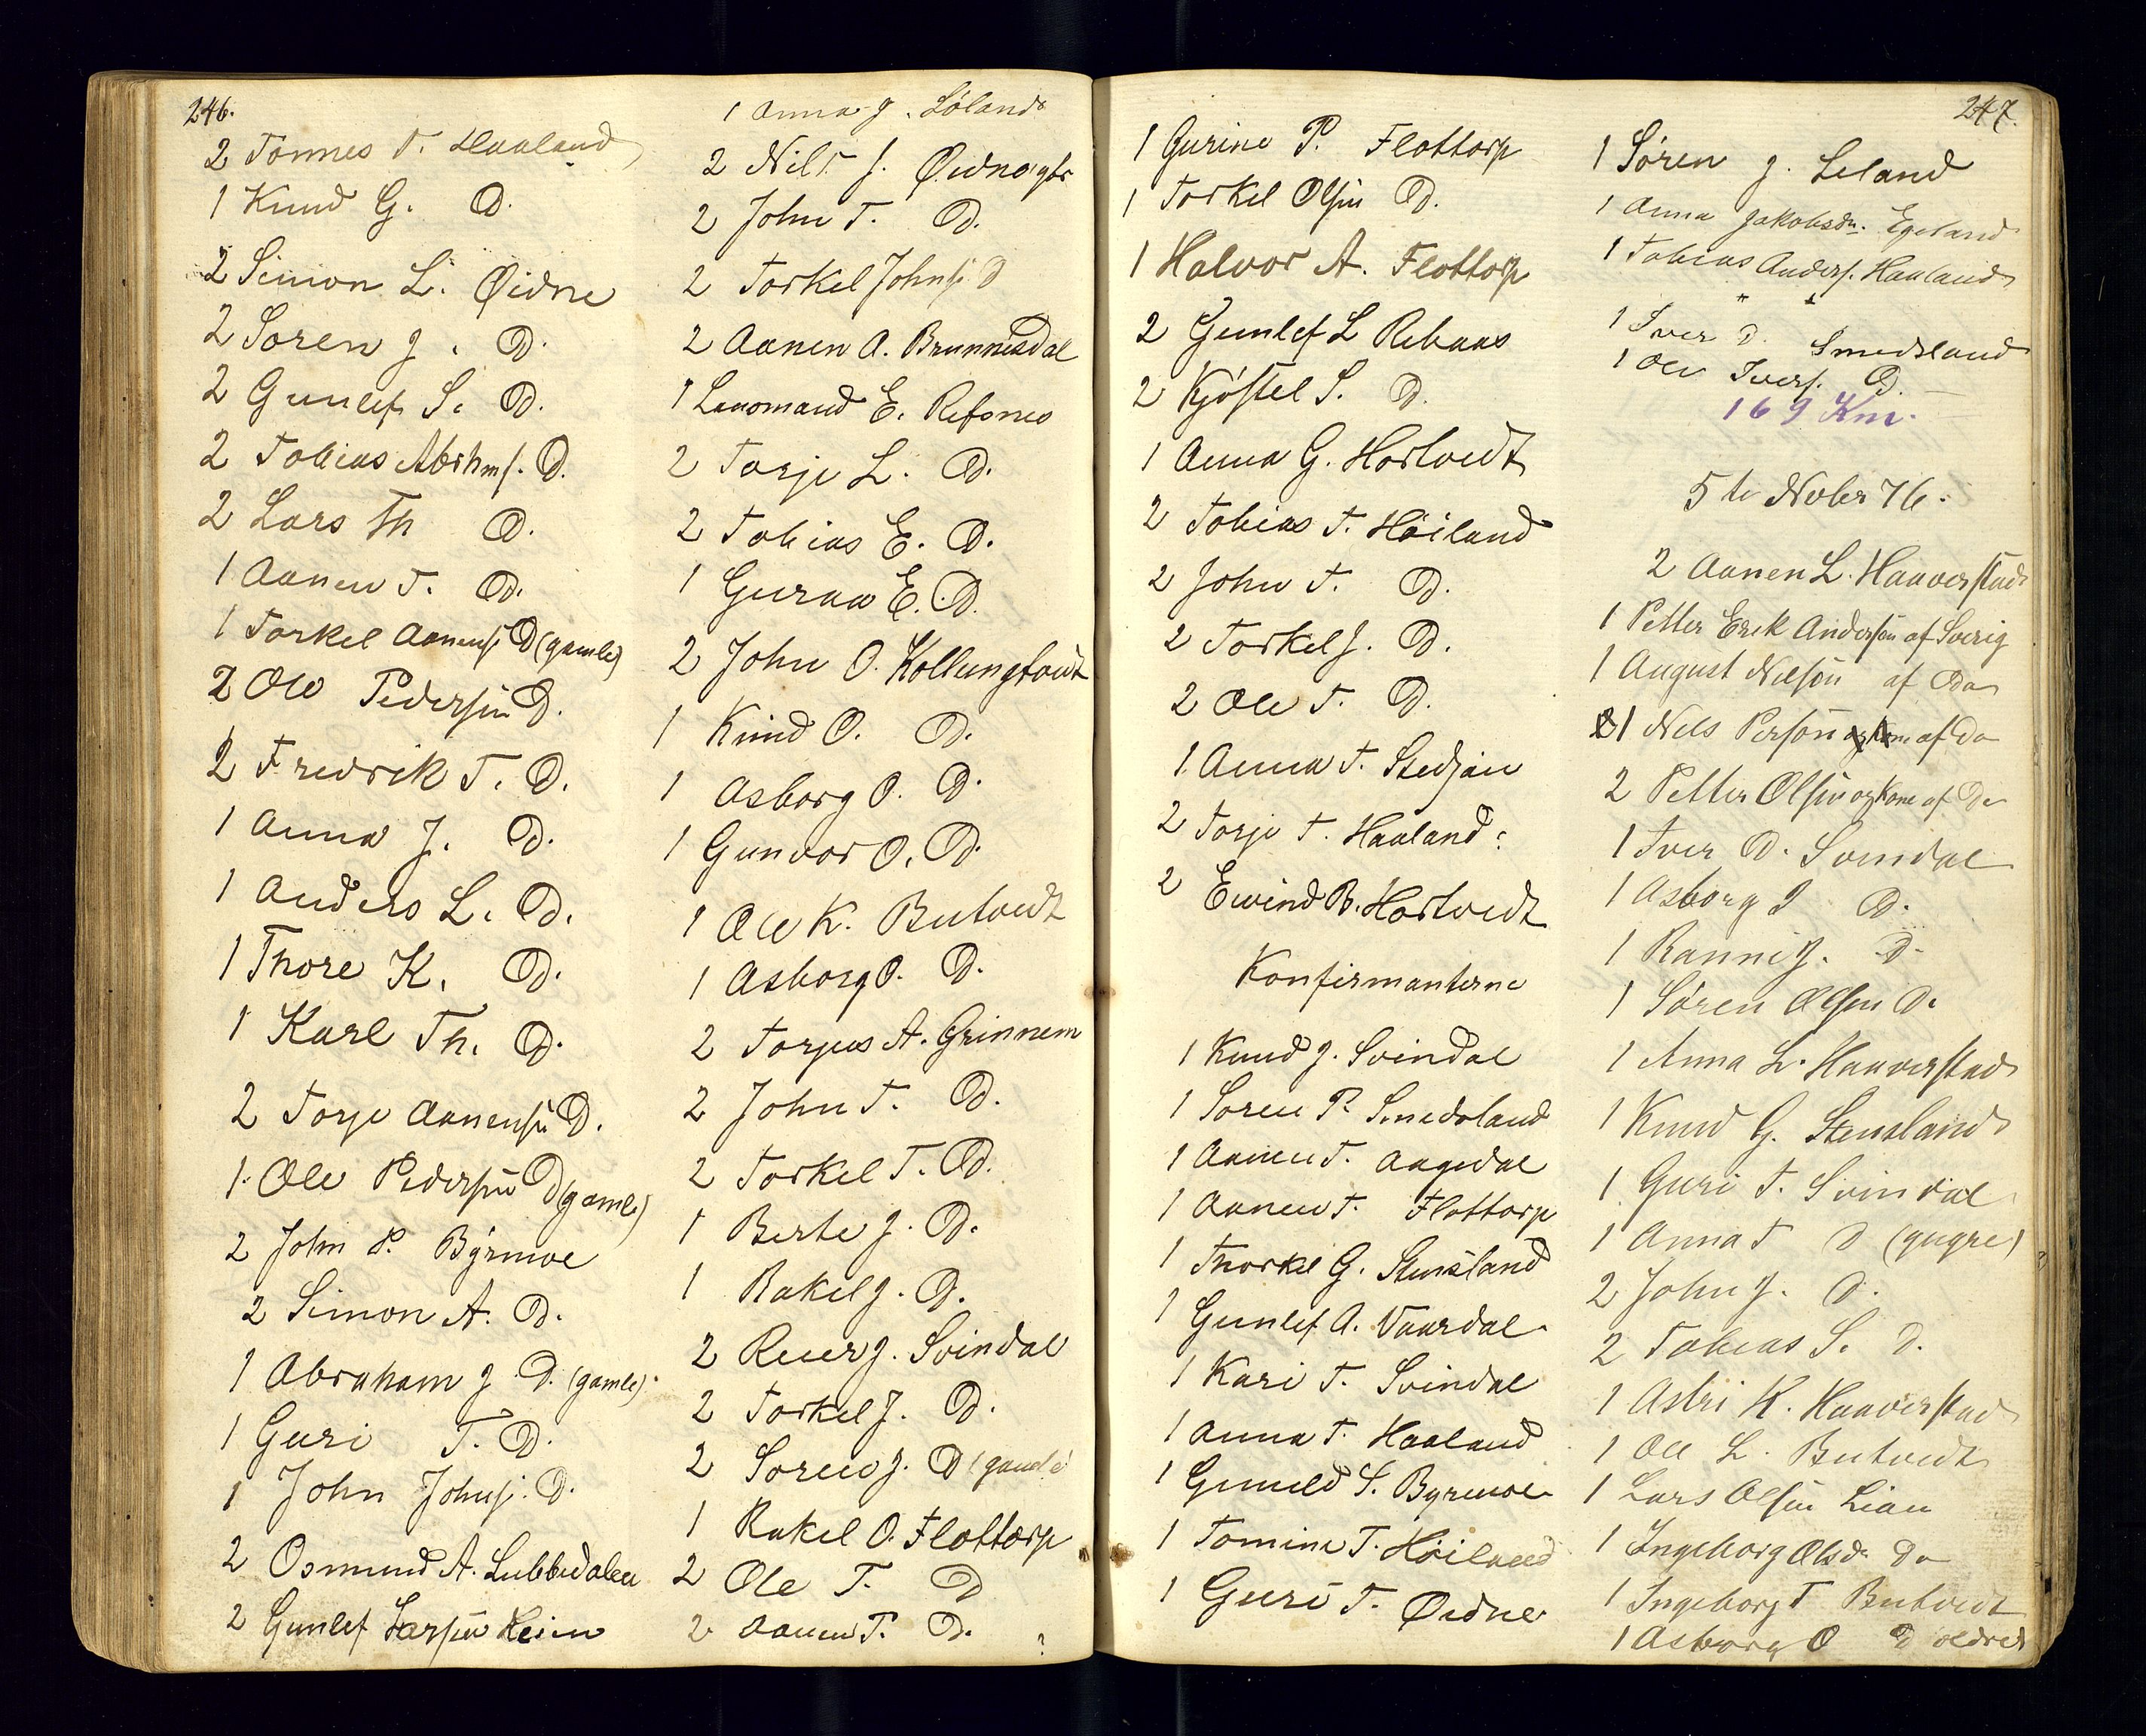 246.
2 Tønnes T. Haaland
1 Knud G. D.
2 Simon L. Øidne
2 Søren J. D.
2 Gunlef S. D.
2 Tobias Abrhms. D.
2 Lars Th D.
1 Aanen T. D.
1 Torkel Aanens. D (gamle)
2 Ole Pedersen D.
2 Fredrik T. D.
1 Anna J. D.
1 Anders L. D.
1 Thore K. D.
1 Karl Th. D.
2 Torje Aanensen D.
1 Ole Pedersen D (gamle)
2 John P. Byrmoe
2 Simon A. D.
1 Abraham J. D. (gamle).
1 Guri T. D.
1 John Johns. D.
2 Osmund A. Lubbedalen
2 Gunlef Larsen Heim
1 Anna J. Løland
2 Nils J. Øidne
2 John T. D.
2 Torkel Johns. D
2 Aanen A. Brunnesdal
1 E. Refsnes
2 Torje L. D.
2 Tobias E. D.
1 E. D.
2 John O. Kollungtvedt
1 Knud O. D.
1 Asborg O. D.
1 Gunvor O. D.
1 Ole K. Butvedt
1 Asborg O. D.
2 Torjus A. Grinnem
2 John T. D.
2 Torkel T. D.
1 Berte J. D.
1 Rakel J. D.
2 Reier J. Svindal
2 Torkel J. D.
2 Søren J. D (gamle
1 Rakel O. Flottorp
2 Ole T. D
2 Aanen T. D.
247.
1 Gurine P. Flottorp
1 Torkel Olsen D.
1 Halvor A. Flottorp
2 Gunlef L Rebaas
2 Kjøstel S. D.
1 Anna G. Hortvedt
2 Tobias T. Høiland
2 John T. D.
2 Torkel J. D.
2 Ole T. D.
1 Anna T. Stedjan
2 Torje T. Haaland
2 Eivind B. Hortvedt
Konfirmanterne
1 Knud J. Svindal
1 Søren P. Smedsland
1 Aanen T. Aagedal
1 Aanen T. Flottorp
1 Thorkel G. Stensland
1 Gunlef A. Vaardal
1 Kari T. Svindal
1 Anna T. Haaland
1 Gunuld S. Byremoe
1 Tomine T. Høiland
1 Guri T. Øidne
1 Søren J. Leland
1 Anna Jakobsdr. Egeland
1 Tobias Anders. Haaland
1 Iver D. Smedsland
1 Ole Ivers. D.
169 Km.
5te Novber 76.
2 Aanen L. Haaverstad
1 Petter Erik Anderson af Sverig
1 August Nelson af Do
1 Nels Person og Kone af Do
2 Petter Olsen og Kone af Do
1 Iver D. Svindal
1 Asborg I D.
1 Ranni J. D.
1 Søren Olsen D.
1 Anna L. Haaverstad
1 Knud G. Stensland
1 Guri T. Svindal
1 Anna T D (yngre)
2 John J. D.
2 Tobias S. D.
1 Astri K. Haaverstad
1 Ole L. Butvedt
1 Lars Olsen Lian
1 Ingeborg Olsdr Do
1 Ingeborg T Butvedt
1 Asborg O D